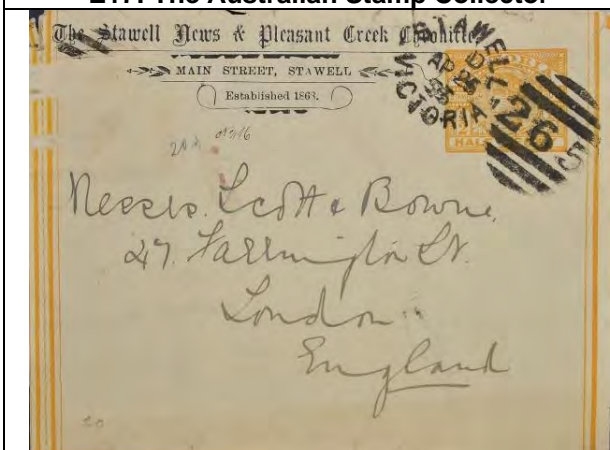 The Australian Stamp Collector
The Stawell News & Pleasant Creek Chronicle
MAIN STREET, STAWELL
Established 1868.
STAWELL
AP 26
VICTORIA
26
HALF
Messrs. Scott & Bowne,
47. Farrington St.
London
England